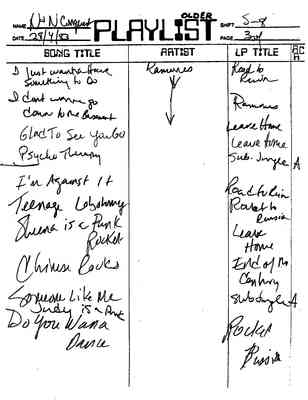 OLDER
NAME: D+N Cangust SHIFT: 5-8
PLAYLIST
DATE: 28/4/83 PAGE 3of
SONG TITLE ARTIST LP TITLE
I Just wanna Have Something to Do Ramones Road to Ruin
I dont wanna go Down to the Basement Ramones
Glad To See You Go Leave Home
Psycho Therapy Leave Home
Sub. Jungle A
I'm Against It Road to Ruin
Teenage Lobotomy Rocket to Russia
Sheena is a Punk Rocker Leave Home
Chinese Rocks End of the Century
Someone Like Me Subdjungle A
Judy is a Punk
Do You Wanna Dance Rocket Russia